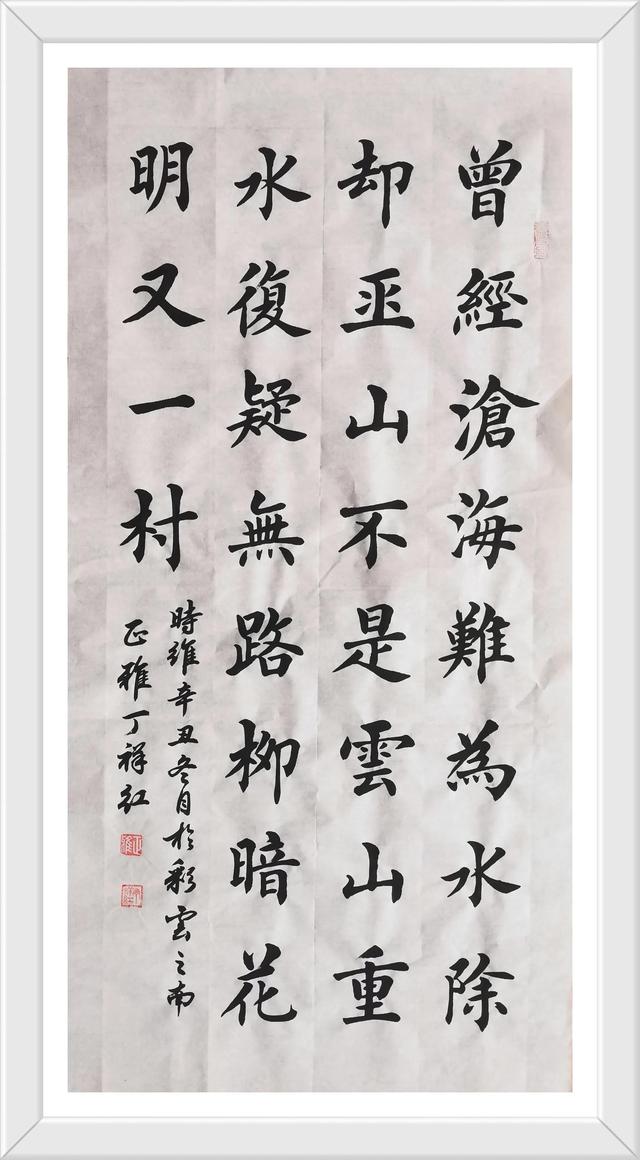 曾經滄海難為水除
却巫山不是雲山重
水復疑無路柳暗花
明又一村
時維辛丑冬月於彩雲之南
正雅丁祥红